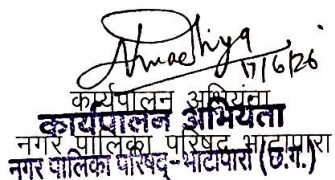 17/6/26
कार्यपालन अभियंता
कार्यपालन अभियंता
नगर पालिका परिषद भाटापारा
नगर पालिका परिषद्-भाटापारा (छ.ग.)